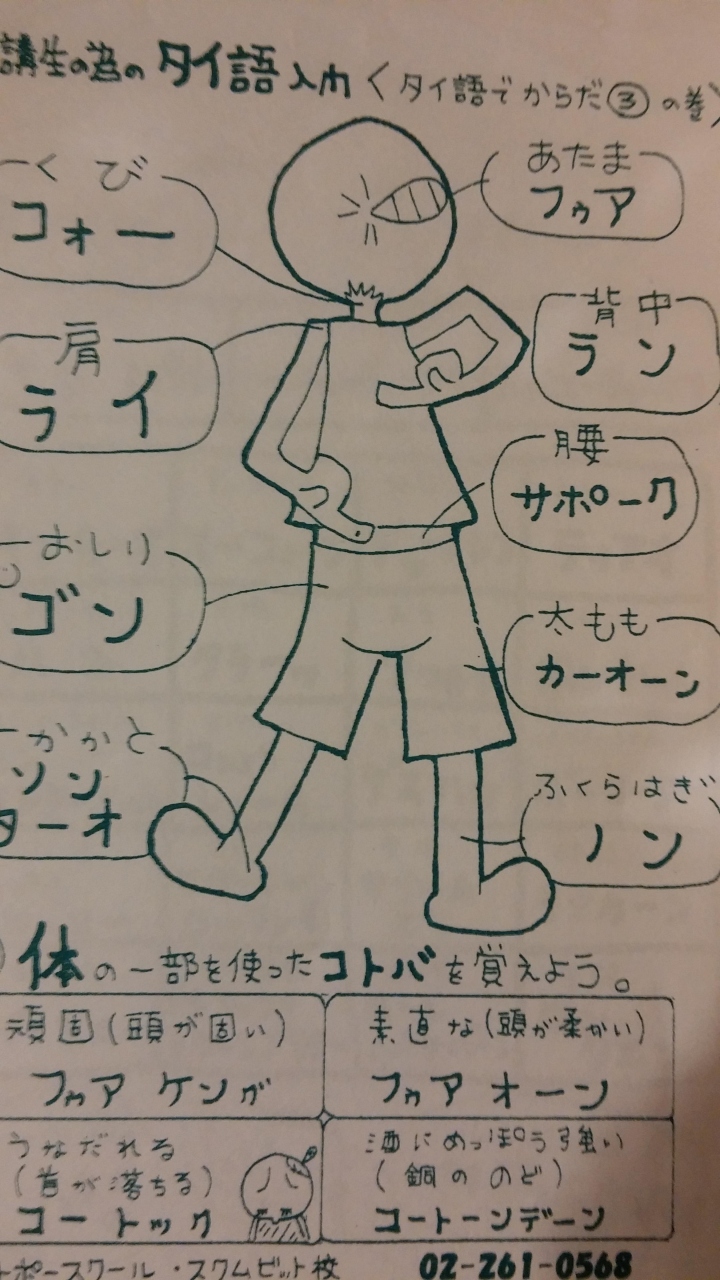 講生の為の タイ語 入門 〈タイ語で からだ ③ の巻〉
くび
コォー
あたま
フゥア
肩
ライ
背中
ラン
腰
サポーク
おしり
ゴン
太もも
カーオーン
かかと
ソン
ターオ
ふくらはぎ
ノン
体の一部を使ったコトバを覚えよう。
頑固(頭が固い)
フゥア ケンガ
素直な(頭が柔かい)
フゥア オーン
うなだれる
(首が落ちる)
コー トック
酒にめっぽう強い
(銅の のど)
コートーンデーン
ポースクール・スクムビット校 02-261-0568